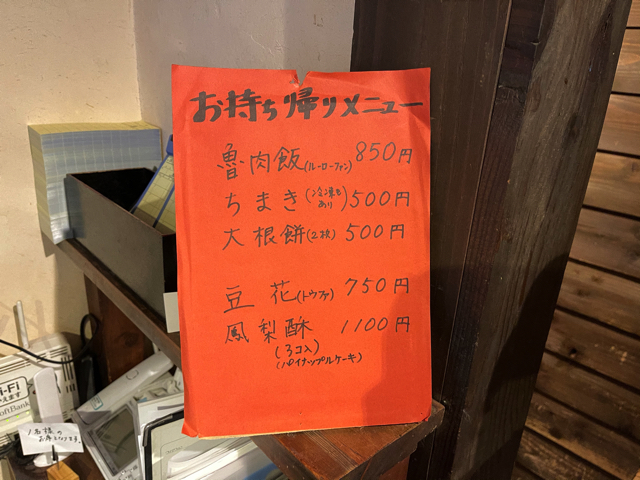 お持ち帰りメニュー
魯肉飯(ルーローファン) 850円
ちまき(冷凍もあり) 500円
大根餅(2枚) 500円
豆花(トウファ) 750円
鳳梨酥 1100円
(3コ入)
(パイナップルケーキ)
Wi-Fi
SoftBank